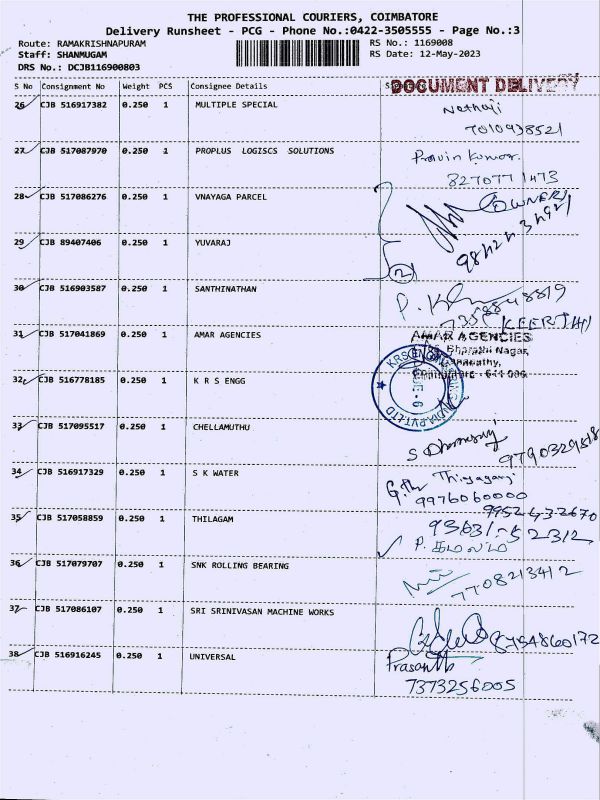 THE PROFESSIONAL COURIERS, COIMBATORE
Delivery Runsheet - PCG - Phone No.:0422-3505555 - Page No.:3
Route: RAMAKRISHNAPURAM RS No.: 1169008
Staff: SHANMUGAM RS Date: 12-May-2023
DRS No.: DCJB116900803
S No Consignment No Weight PCS Consignee Details
DOCUMENT DELIVERY
26 CJB 516917382 0.250 1 MULTIPLE SPECIAL
Nethaji
7010938521
27 CJB 517087970 0.250 1 PROPLUS LOGISCS SOLUTIONS Pravin Kumar.
8270771473
28 CJB 517086276 0.250 1 VNAYAGA PARCEL OWNER
29 CJB 89407406 0.250 1 YUVARAJ
2
30 CJB 516903587 0.250 1 SANTHINATHAN
KEERTHI
31 CJB 517041869 0.250 1 AMAR AGENCIES AMAR AGENCIES
Bharathi Nagar,
32 CJB 516778185 0.250 1 K R S ENGG
33 CJB 517095517 0.250 1 CHELLAMUTHU
9790329518
34 CJB 516917329 0.250 1 S K WATER
9976060000
9952432670
35 CJB 517058859 0.250 1 THILAGAM
P. கமலம்
36 CJB 517079707 0.250 1 SNK ROLLING BEARING
7708213412
37 CJB 517086107 0.250 1 SRI SRINIVASAN MACHINE WORKS
8754860172
38 CJB 516916245 0.250 1 UNIVERSAL Prasanth
7373256005